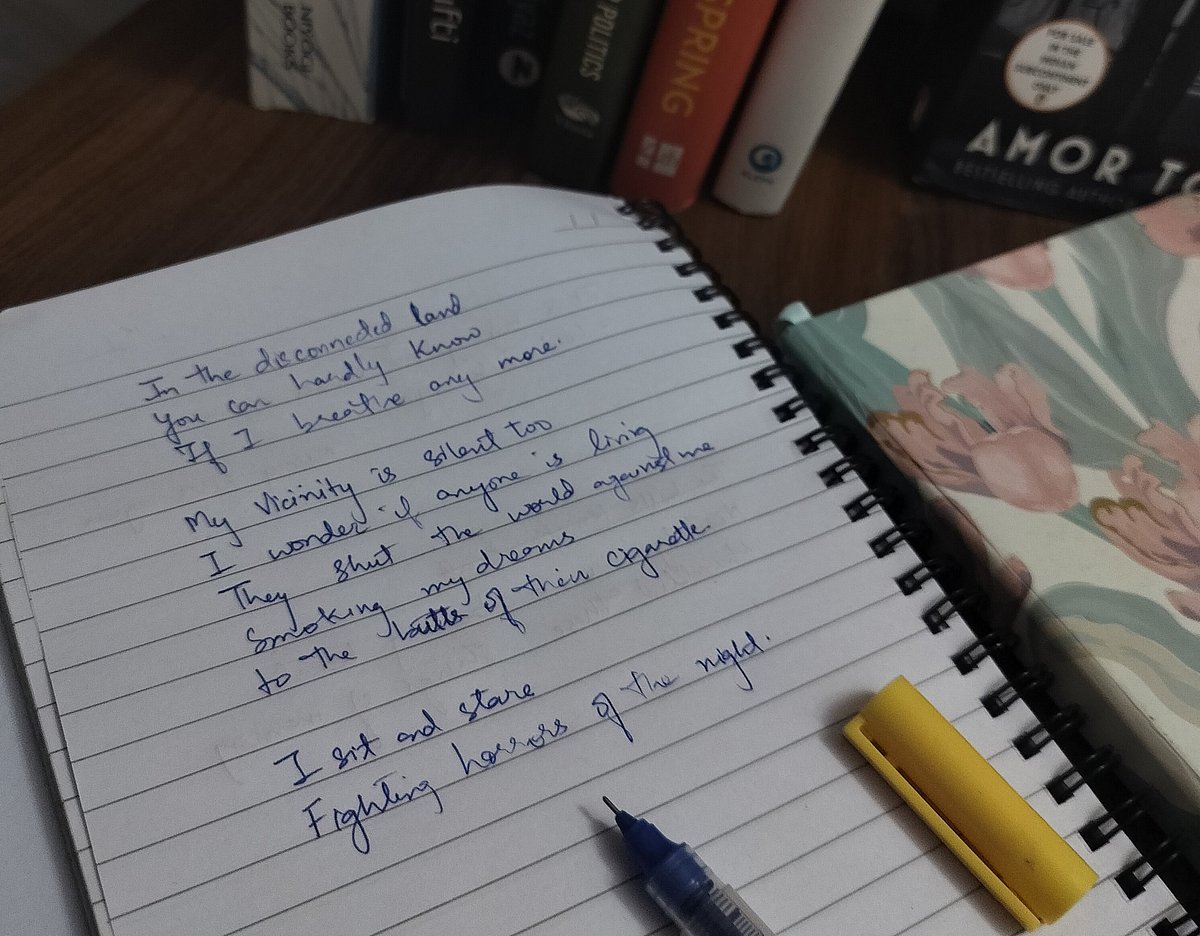 POLITICS
SPRING
FOR SALE
IN THE
INDIAN
SUBCONTINENT
ONLY
AMOR TO
BESTSELLING AUTHO
In the disconneded land
you can hardly know
If I breathe any more.
My vicinity is silent too
I wonder if anyone is living
They shut the world against me
Smoking my dreams
to the butts of their cigarette.
I sit and stare
Fighting horrors of the night.